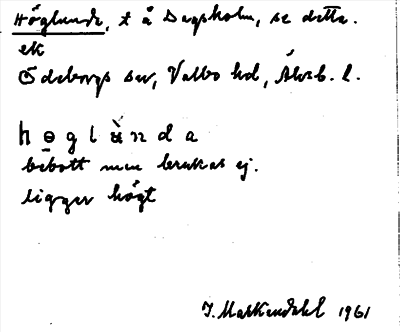 Höglunda, t å Dagsholm, se detta.
ek
Ödeborgs sn, Valbo hd, Älvsb. l.
høglu̇̀nda
bebott men brukas ej.
ligger högt
J. Markendahl 1961